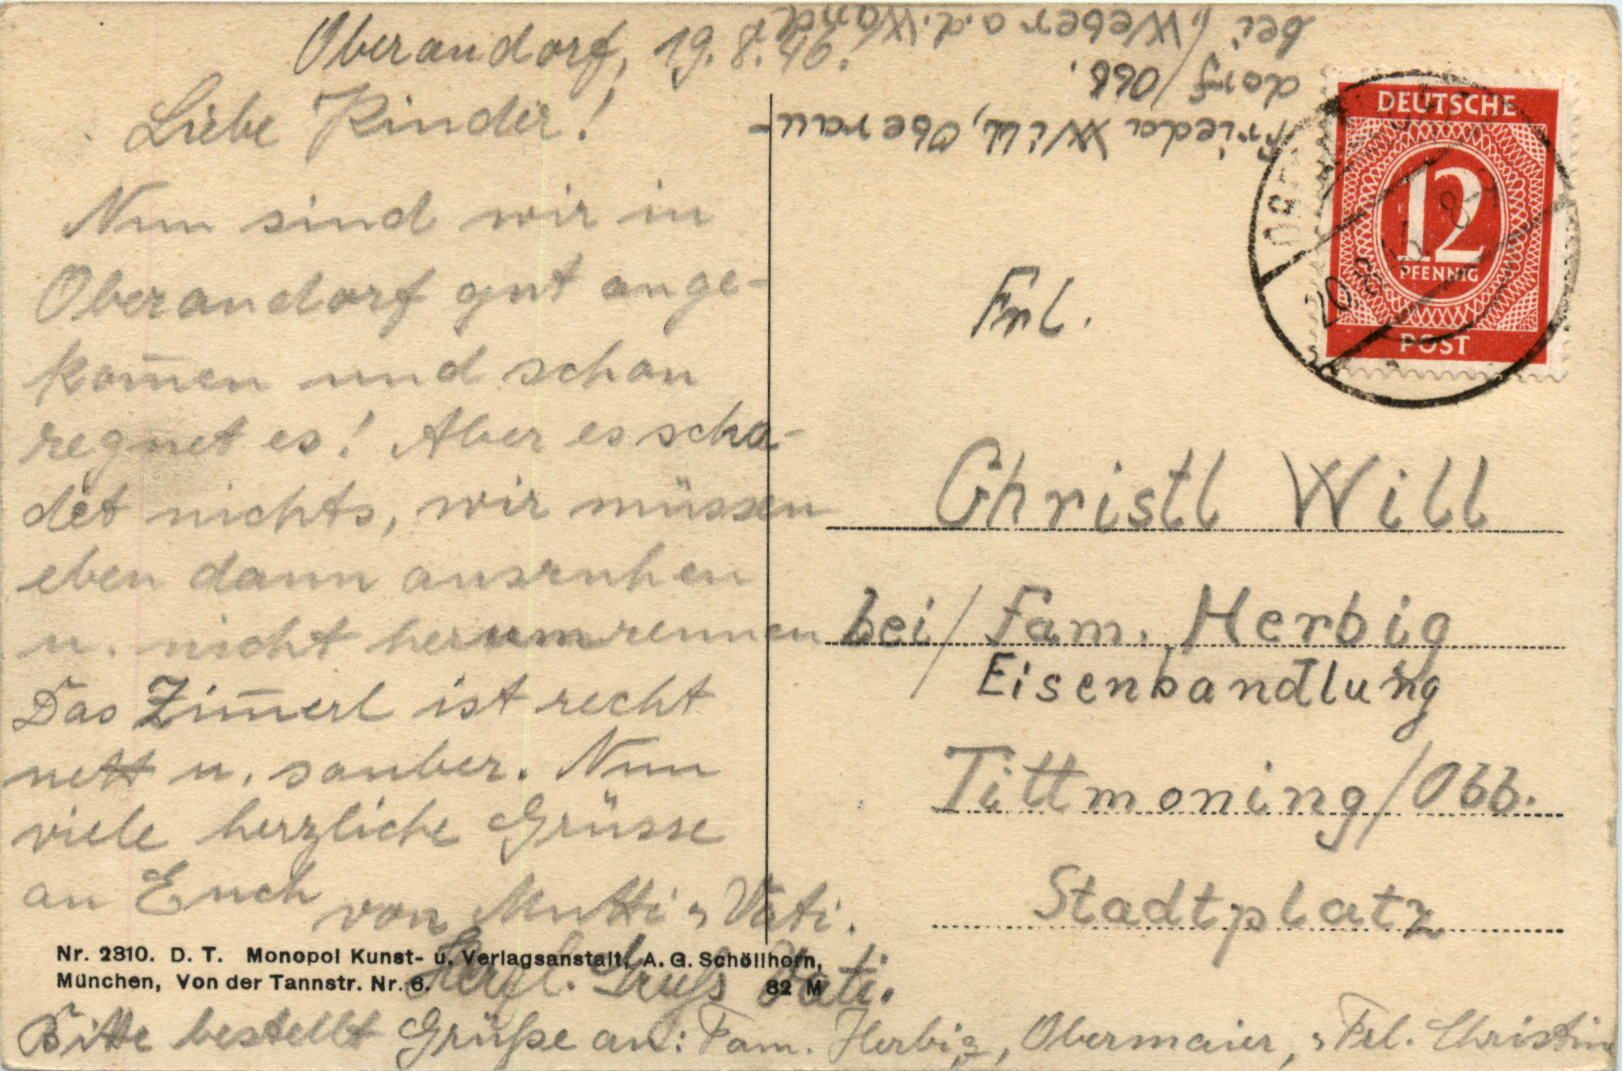 Oberaudorf, 19.8.46.
Liebe Kinder!
Nun sind wir in
Oberaudorf gut ange-
kom̅en und schon
regnet es! Aber es scha-
det nichts, wir müssen
eben dann ausruhen
u. nicht herumrennen
Das Zim̅erl ist recht
nett u. sauber. Nun
viele herzliche Grüsse
an Euch von Mutti u Vati.
Herzl. Gruß Vati.
Bitte bestellt Grüße an: Fam. Herbig, Obermaier, u Frl. Christine
Nr. 2810. D. T. Monopol Kunst- u. Verlagsanstalt, A. G. Schöllhorn,
München, Von der Tannstr. Nr. 6. 82 M
Frieda Will, Oberau-
dorf/Obb.
bei/Weber a.d. Wand
DEUTSCHE
12
PFENNIG
POST
20.8.
Frl.
Christl Will
bei/Fam. Herbig
Eisenhandlung
Tittmoning/Obb.
Stadtplatz